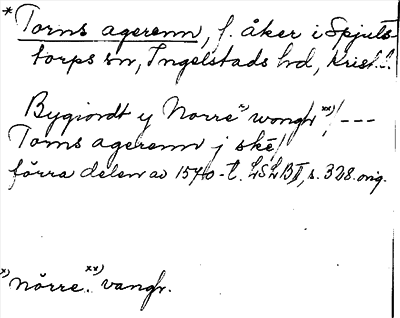 * Torns agerenn, f. åker i Spjuts-
torps sn, Ingelstads hd, Krist. l.
Bygiordt y Norre x) wongr xx) ---
Torns agerenn j ské
förra delen av 1570-t. LSLB II, s. 328. orig.
x) nörre. xx) vangr.